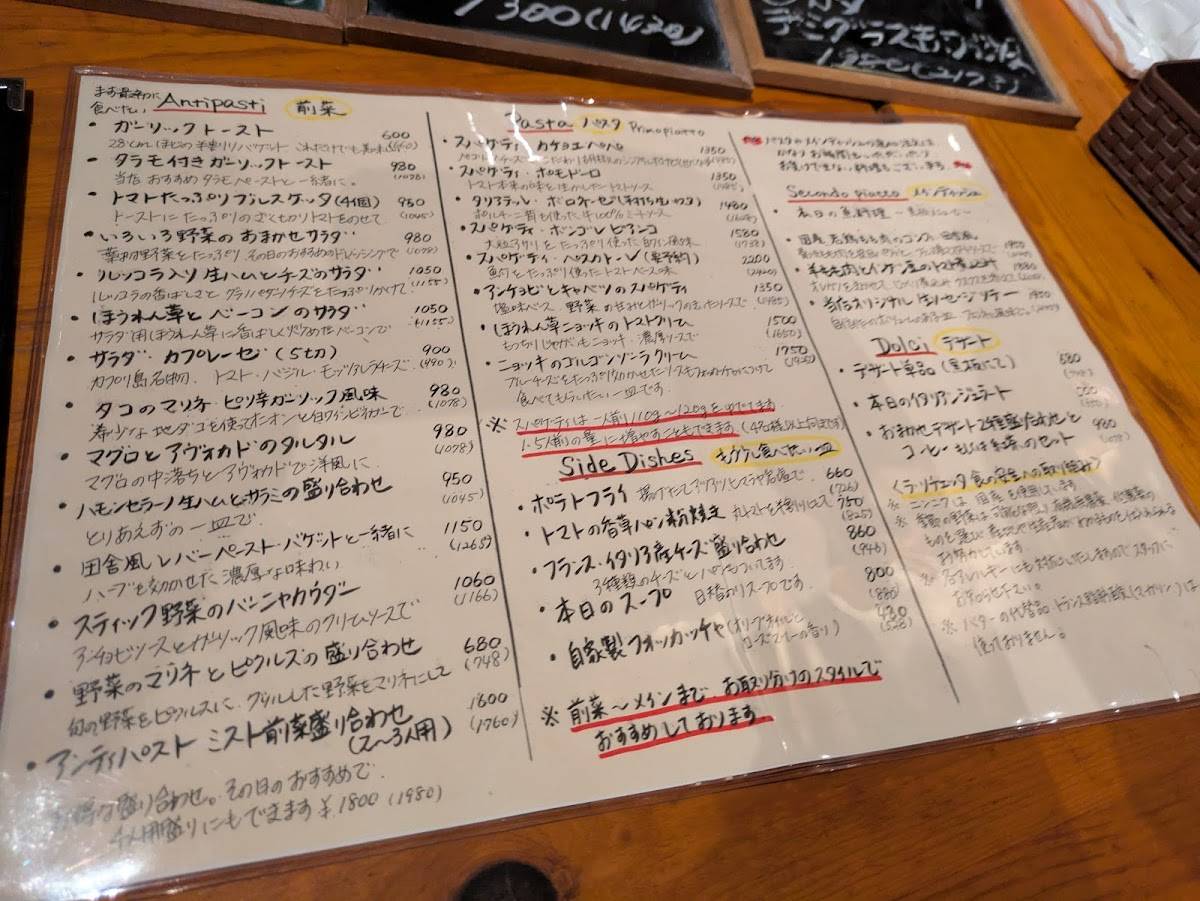 1300(1430)
デミグラス
まず最初に
食べたい Antipasti 前菜
・ガーリックトースト 600
(660)
・タラモ付きガーリックトースト 980
当店おすすめタラモペーストと一緒に。 (1078)
・トマトたっぷりブルスケッタ(4個) 950
トーストにたっぷりのざくぎりトマトをのせて (1045)
・いろいろ野菜のおまかせサラダ 980
葉物野菜をたっぷり その日のおすすめのドレッシングで (1078)
・ルッコラ入り生ハムとチーズのサラダ 1050
ルッコラの香ばしさとグラノパダーノチーズをたっぷりかけて (1155)
・ほうれん草とベーコンのサラダ 1050
サラダ用ほうれん草に香ばしく炒めたベーコンで (1155)
・サラダ・カプレーゼ (5切) 900
カプリ島名物、トマト・バジル・モッツァレラチーズ (990)
・タコのマリネ・ピリ辛ガーリック風味 980
希少な地ダコを使ってオニオンと白ワインビネガーで (1078)
・マグロとアヴォカドのタルタル 980
マグロの中落ちとアヴォカドで洋風に (1078)
・ハモンセラーノ生ハムとサラミの盛り合わせ 950
とりあえずの一皿で (1045)
・田舎風レバーペースト・バゲットと一緒に 1150
ハーブを効かせた濃厚な味わい (1265)
・スティック野菜のバーニャカウダー 1060
アンチョビソースとガーリック風味のクリームソースで (1166)
・野菜のマリネとピクルスの盛り合わせ 680
旬の野菜をピクルスに、グリルした野菜をマリネにして (748)
・アンティパスト ミスト前菜盛り合わせ 1600
(2〜3人用) (1760)
お得な盛り合わせ。その日のおすすめで
4人用盛りにもできます ¥1800 (1980)
Pasta パスタ Primo piatto
・スパゲティ カチョエペペ 1350
(1485)
・スパゲティ・ポモドーロ 1350
トマト本来の味を生かしたトマトソース (1485)
・タリアテッレ・ボロネーゼ(手打ち生パスタ) 1480
ポルチーニ茸も使った牛100%ミートソース (1628)
・スパゲティ・ボンゴレビアンコ 1580
大粒アサリをたっぷり使った白ワイン風味 (1738)
・スパゲティ・ペスカトーレ(要予約) 2200
魚介をたっぷり使ったトマトベース味 (2420)
・アンチョビとキャベツのスパゲティ 1350
塩味ベース 野菜の甘みとガーリックのきいたソースで (1485)
・ほうれん草ニョッキのトマトクリーム 1500
もっちりじゃがいもニョッキ・濃厚ソースで (1650)
・ニョッキのゴルゴンゾーラクリーム 1750
ブルーチーズをたっぷり効かせたソースをフォカッチャにつけて (1925)
食べてもらいたい一皿です。
※ スパゲティは一人前110g〜120gをゆでてます
1.5人前の量に増やすこともできます(4名様以上向きです)
Side Dishes もう少し食べたい一皿
・ポテトフライ 揚げたてアツアツヒマラヤ岩塩で 660
(726)
・トマトの香草パン粉焼き 丸トマトを半割りにして 750
(825)
・フランス・イタリア産チーズ盛り合わせ 860
3種類のチーズとパンもついてます (946)
・本日のスープ 日替わりスープです。 800
(880)
・自家製フォッカッチャ(オリーブオイルと 480
ローズマリーの香り) (528)
※ 前菜〜メインまで、お取り分けのスタイルで
おすすめしております。
かなりお時間
お受けできない料理もございます
Secondo piatto メインディッシュ
・本日の魚料理
・国産若鶏もも肉のコンフィ 田舎風
・羊もも肉とインゲン豆のトマト煮込み 1880
・当店オリジナル 生ソーセージソテー
Dolci デザート
・デザート単品(黒板にて) 680
(748)
・本日のイタリアンジェラート
・おまかせデザート2種盛り合わせと 980
コーヒーもしくは紅茶のセット (1078)
食の安全への取り組み
※ ニンニクは国産を使用しています
お努力しています。
※ アレルギーにも対応いたしますのでスタッフに
お知らせ下さい。
※ バターの代替品トランス脂肪酸(マーガリン)は
使っておりません。